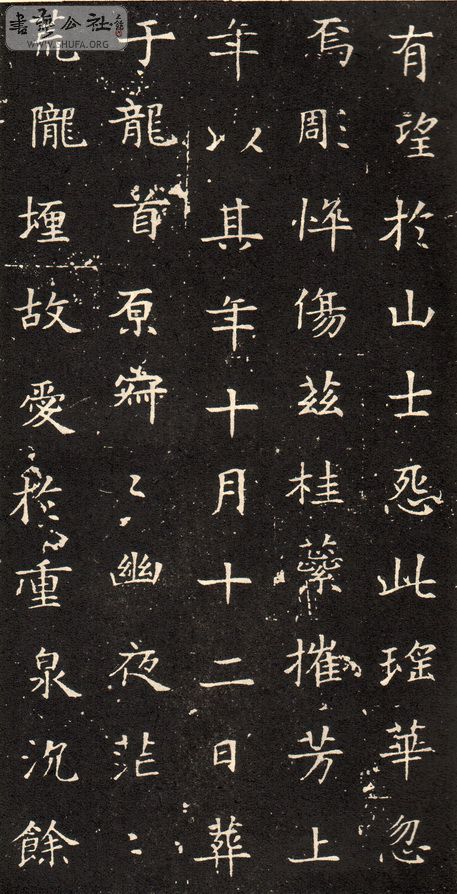 有望於山士怨此瑤華忽
焉彫悴傷茲桂蘂摧芳上
年以其年十月十二日葬
于龍首原寂〻幽夜茫〻
荒隴堙故愛於重泉沉餘
書法公社
WWW.SHUFA.ORG